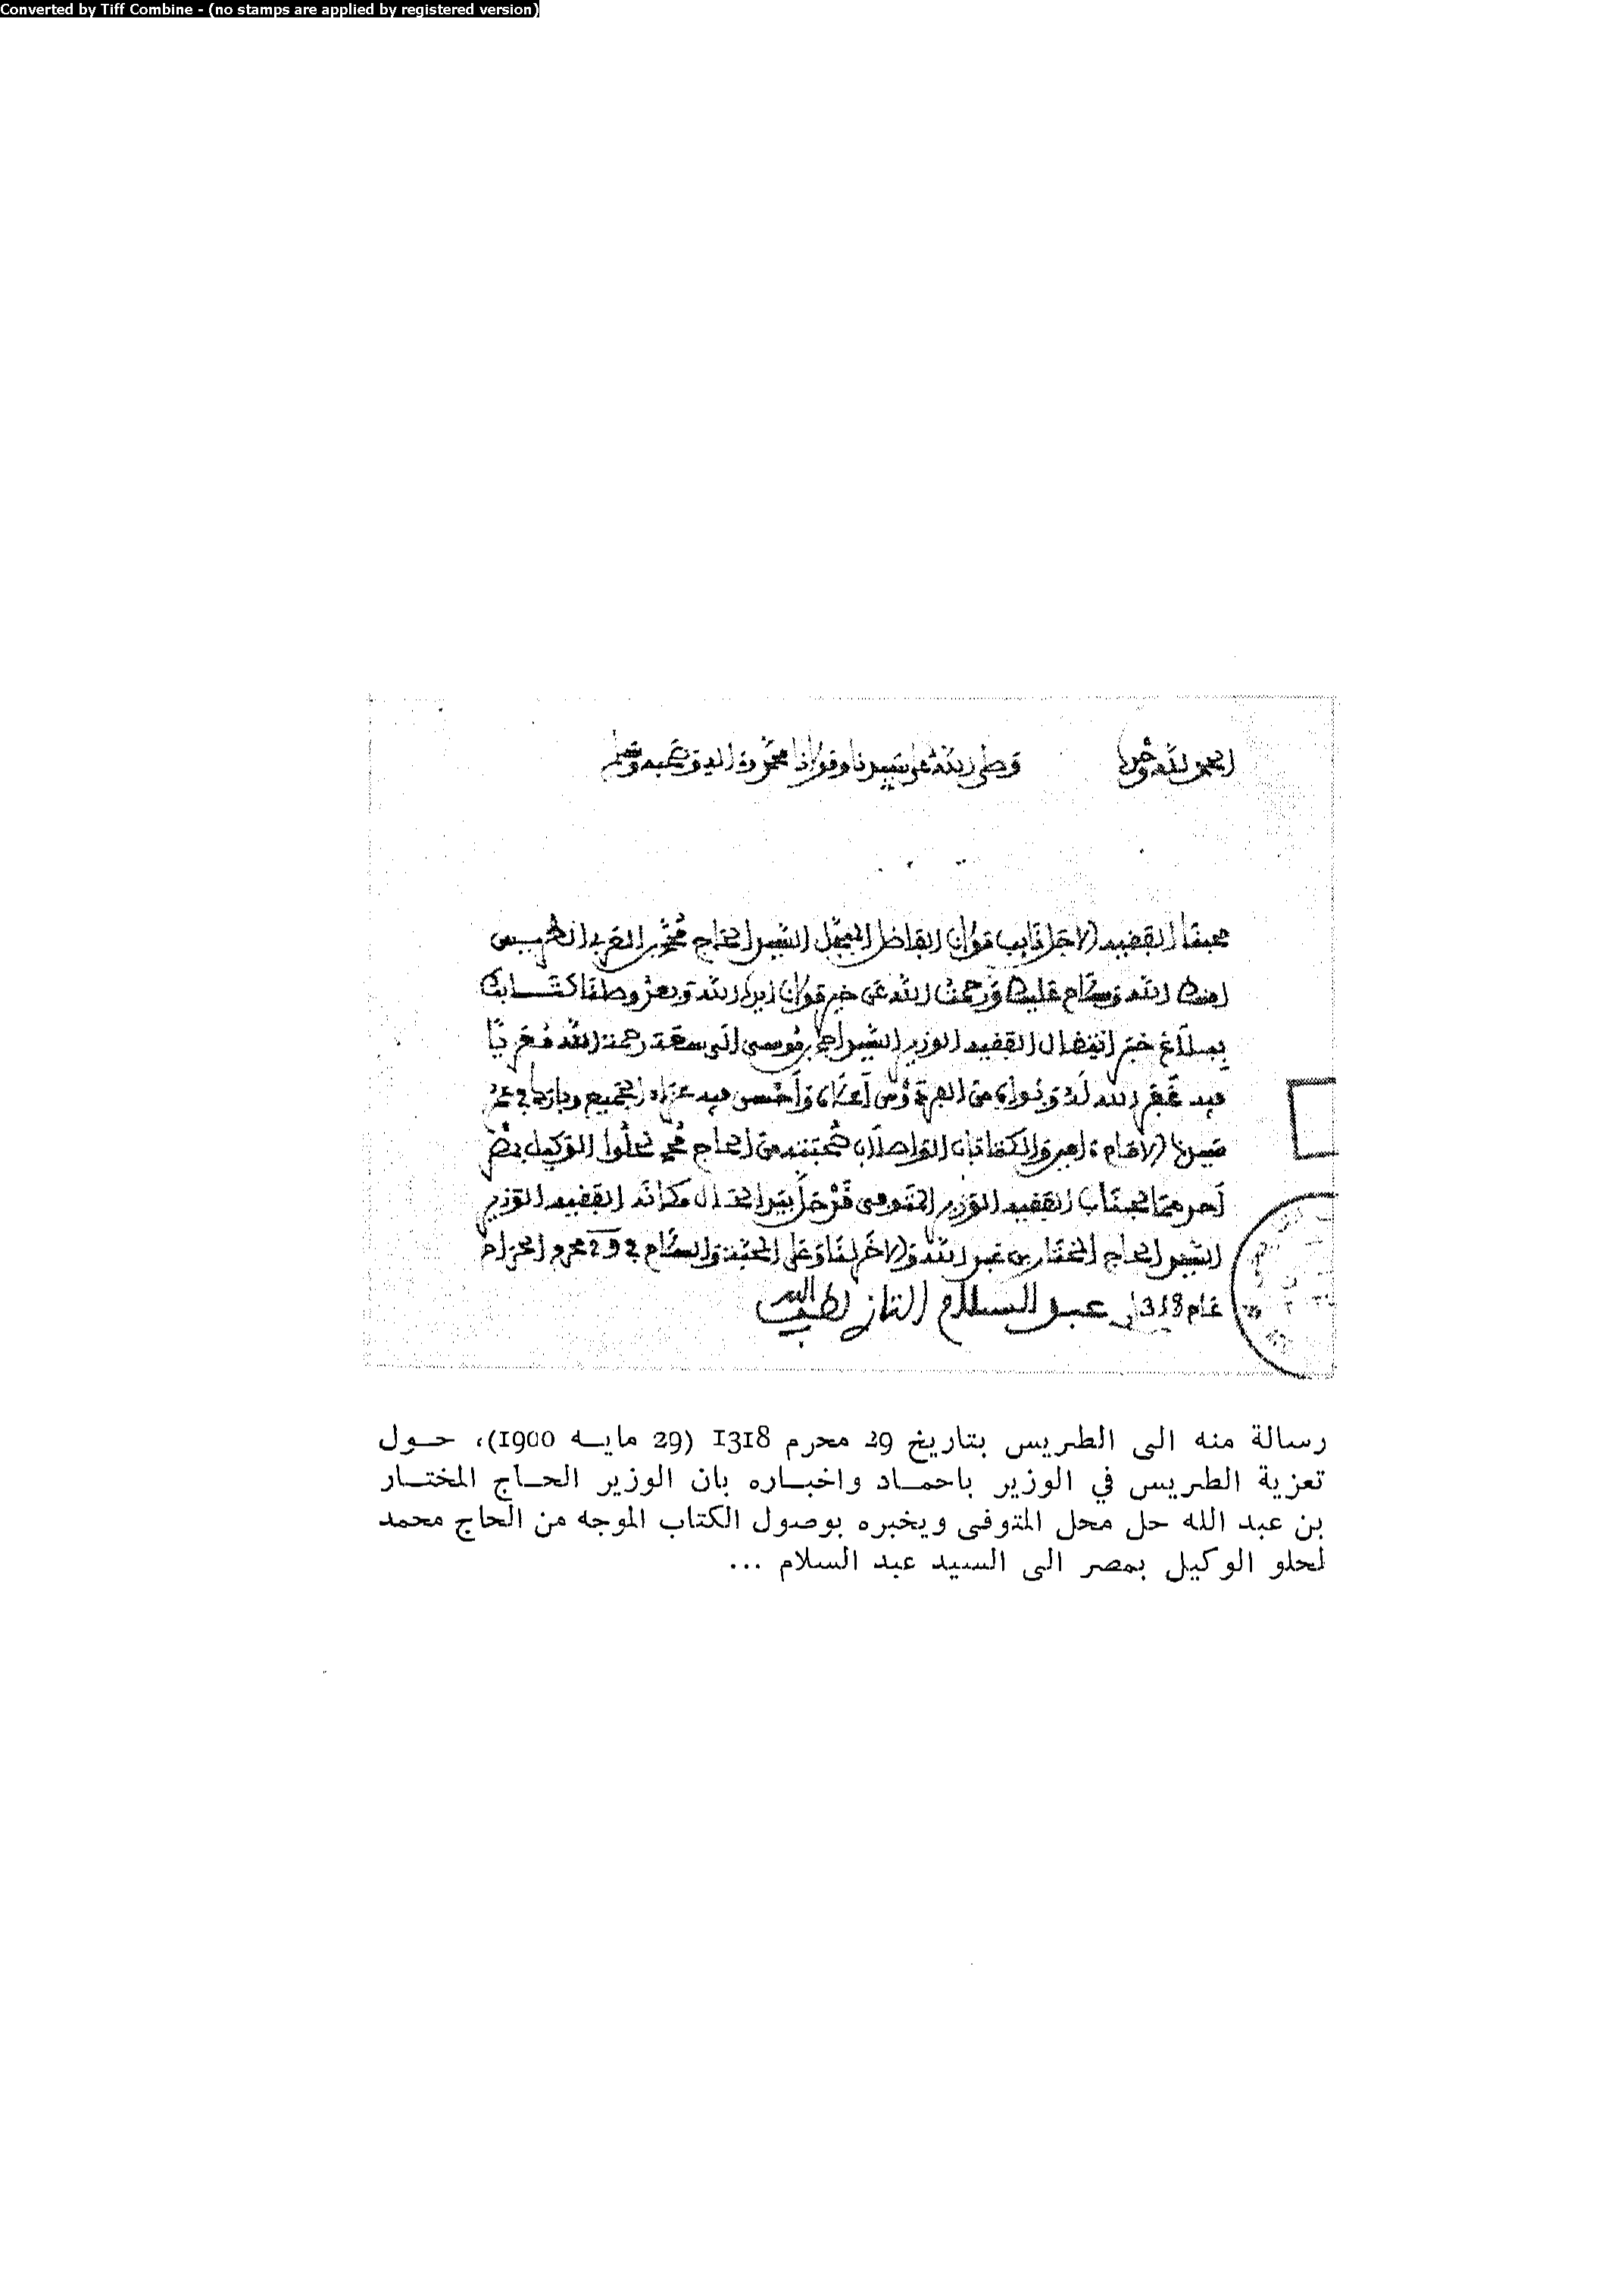 Converted by Tiff Combine - (no stamps are applied by registered version)
الحمد لله وحده وصلى الله على سيدنا ومولانا محمد وءاله وصحبه وسلم
محبنا الفقيه الاجل نايب مولانا الفاضل المبجل السيد الحاج محمد بن العربي الطريس
امنك الله وسلام عليك ورحمت الله عن خير مولانا ايده الله وبعد وصلنا كتابك
خبر انتقال الفقيه الوزير السيد احمد بن موسى الى سعة رحمة الله معزيا
فيه غفر الله له من الفردوس أعلاه وأحسن فيه عزاء الجميع وبارك في عمر
سيدنا الامام الواصلان صحبته من الحاج محمد لحلوا الوكيل بمصر
احدهما لجناب الفقيه الوزير المتوفى فقد حل بيد الحال مكانه الفقيه الوزير
السيد الحاج المختار بن عبد الله والاخر لنا وعلى المحبة والسلام في 29 محرم الحرام
عام 1318 عبد السلام التازي لطف الله به
رسالة منه الى الطريس بتاريخ 29 محرم 1318 (29 مايـه 1900)، حـول
تعزية الطريس في الوزير باحمـاد واخبـاره بان الوزير الحـاج المختـار
بن عبد الله حل محل المتوفى ويخبره بوصول الكتاب الموجه من الحاج محمد
لحلو الوكيل بمصر الى السيد عبد السلام ...